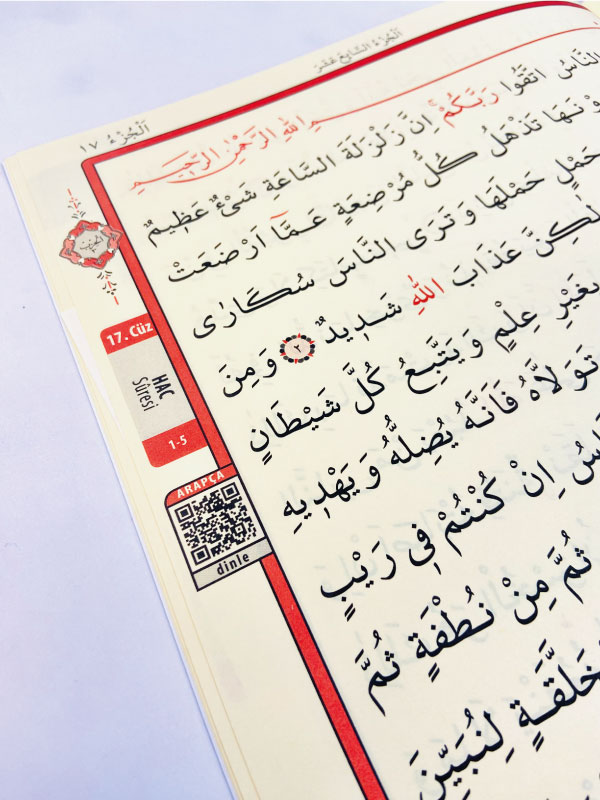 اَلْجُزْءُ السَّابِعُ عَشَرَ
اَلْجُزْءُ ١٧
اللّٰهِ الرَّحْمٰنِ الرَّحِيمِ
النَّاسُ اتَّقُوا رَبَّكُمْۚ اِنَّ زَلْزَلَةَ السَّاعَةِ شَيْءٌ عَظِيمٌ
وْنَهَا تَذْهَلُ كُلُّ مُرْضِعَةٍ عَمَّٓا اَرْضَعَتْ
حَمْلٍ حَمْلَهَا وَتَرَى النَّاسَ سُكَارٰى
لٰكِنَّ عَذَابَ اللّٰهِ شَدِيدٌ ٢ وَمِنَ
بِغَيْرِ عِلْمٍ وَيَتَّبِعُ كُلَّ شَيْطَانٍ
تَوَلَّاهُ فَاَنَّهُ يُضِلُّهُ وَيَهْدِيهِ
اِنْ كُنْتُمْ فِي رَيْبٍ
ثُمَّ مِنْ نُطْفَةٍ ثُمَّ
لِنُبَيِّنَ
17. Cüz
HAC
Sûresi
1-5
ARAPÇA
dinle